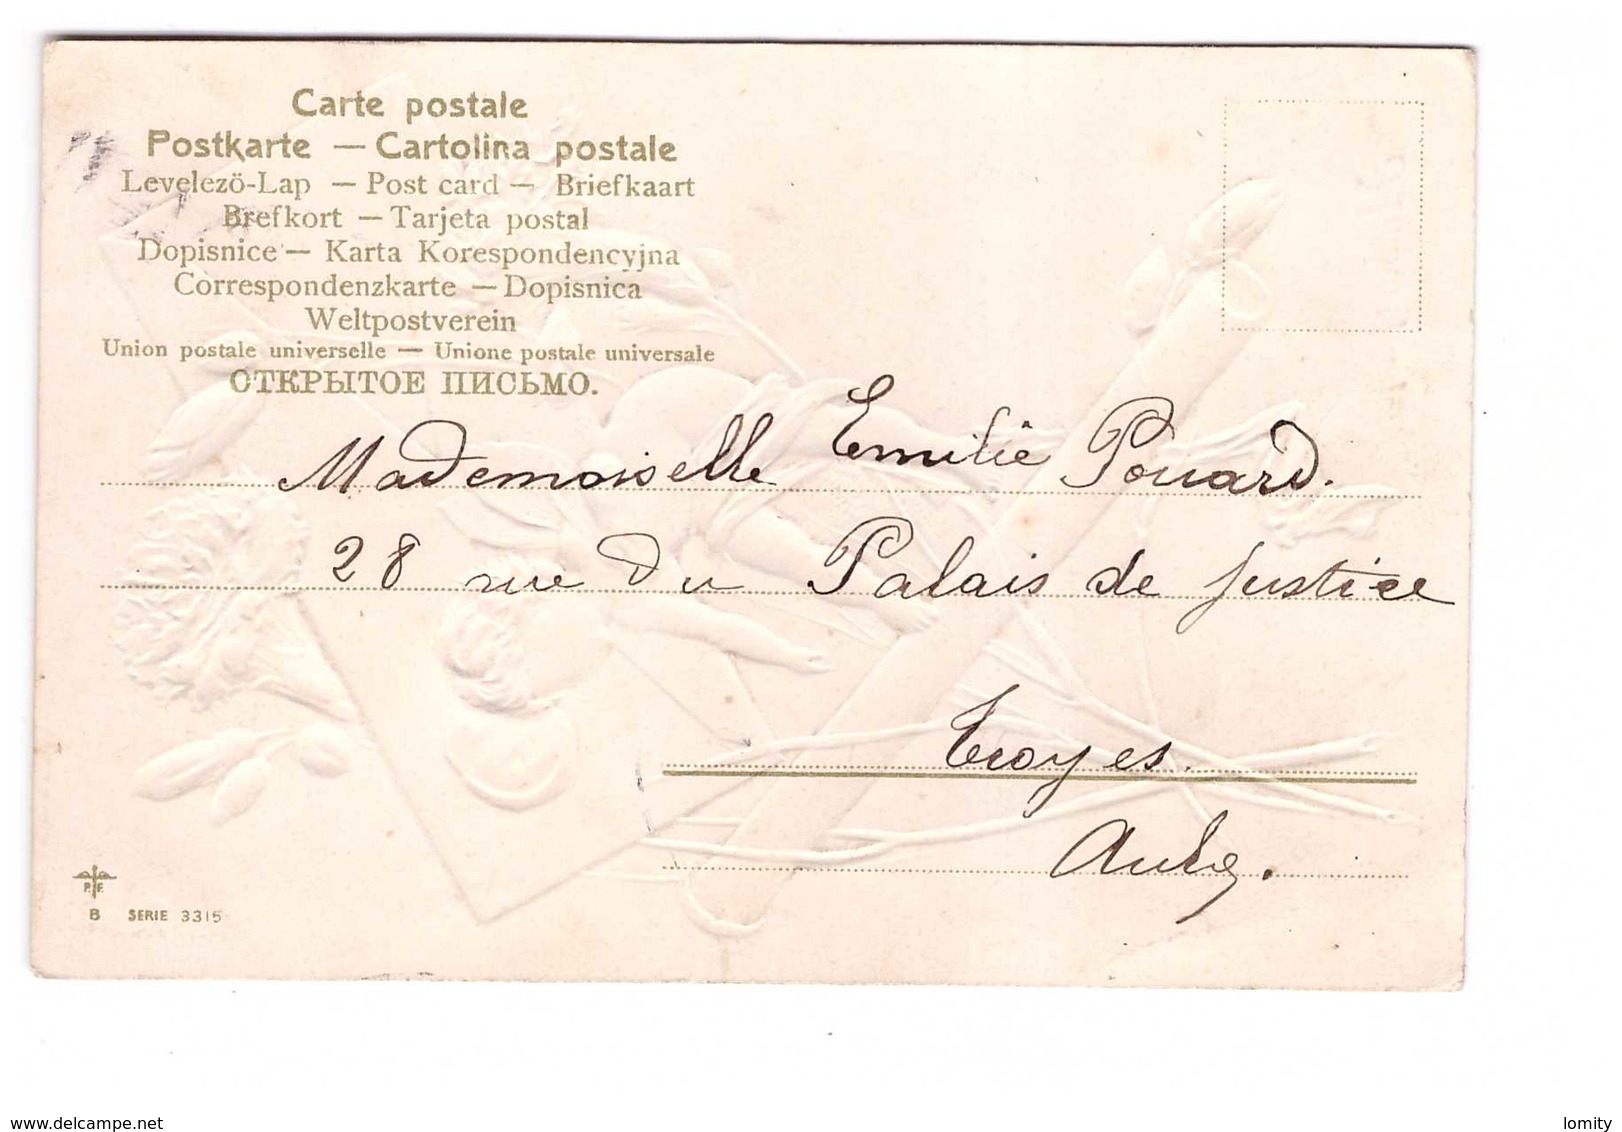 Carte postale
Postkarte — Cartolina postale
Levelezö-Lap — Post card — Briefkaart
Brefkort — Tarjeta postal
Dopisnice — Karta Korespondencyjna
Correspondenzkarte — Dopisnica
Weltpostverein
Union postale universelle — Unione postale universale
ОТКРЫТОЕ ПИСЬМО.
Mademoiselle Emilie Pouard.
28 rue du Palais de Justice
Troyes.
Aube.
P. F.
B SERIE 3315
www.delcampe.net
lomity